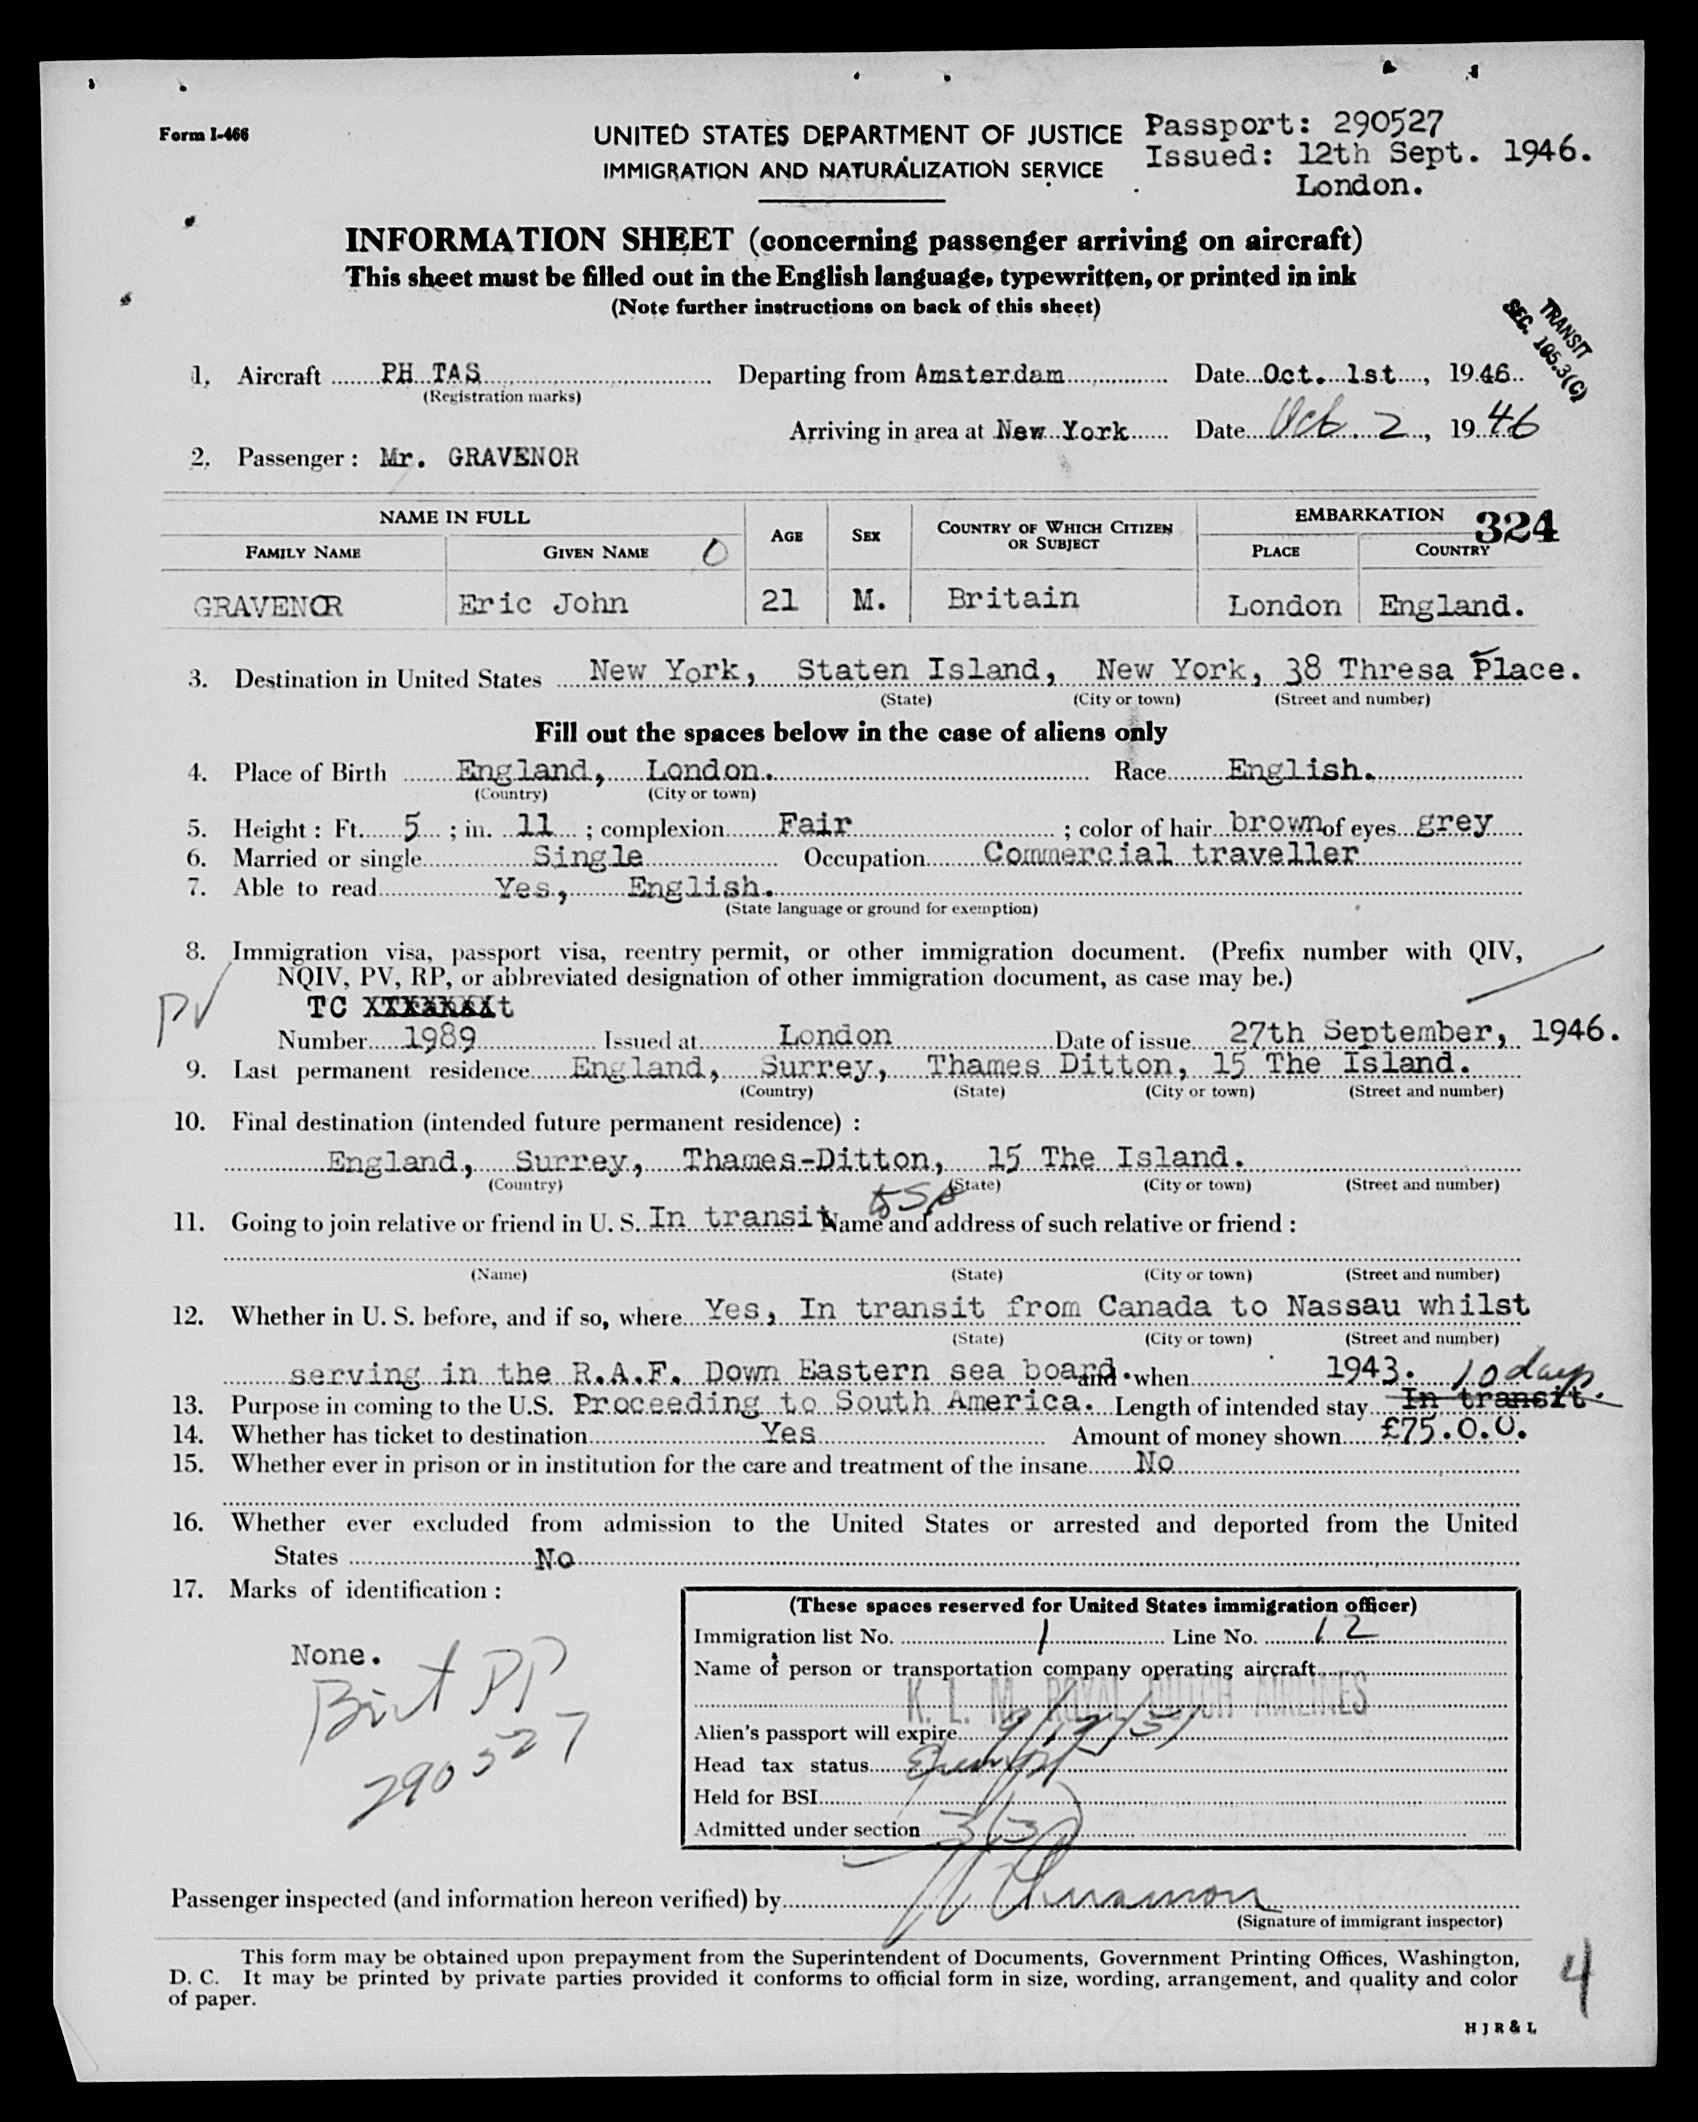 Form I-466
UNITED STATES DEPARTMENT OF JUSTICE
IMMIGRATION AND NATURALIZATION SERVICE
Passport: 290527
Issued: 12th Sept. 1946.
London.
INFORMATION SHEET (concerning passenger arriving on aircraft)
This sheet must be filled out in the English language, typewritten, or printed in ink
(Note further instructions on back of this sheet)
TRANSIT
SEC. 105.3(C)
1. Aircraft PH TAS Departing from Amsterdam Date Oct. 1st, 1946
(Registration marks)
Arriving in area at New York Date Oct. 2, 1946
2. Passenger: Mr. GRAVENOR
NAME IN FULL AGE SEX COUNTRY OF WHICH CITIZEN OR SUBJECT EMBARKATION 324
FAMILY NAME GIVEN NAME O PLACE COUNTRY
GRAVENOR Eric John 21 M. Britain London England.
3. Destination in United States New York, Staten Island, New York, 38 Thresa Place.
(State) (City or town) (Street and number)
Fill out the spaces below in the case of aliens only
4. Place of Birth England, London. Race English.
(Country) (City or town)
5. Height: Ft. 5; in. 11; complexion Fair; color of hair brown of eyes grey
6. Married or single Single Occupation Commercial traveller
7. Able to read Yes, English.
(State language or ground for exemption)
8. Immigration visa, passport visa, reentry permit, or other immigration document. (Prefix number with QIV,
NQIV, PV, RP, or abbreviated designation of other immigration document, as case may be.)
PV
TC
Number 1989 Issued at London Date of issue 27th September, 1946.
9. Last permanent residence England, Surrey, Thames Ditton, 15 The Island.
(Country) (State) (City or town) (Street and number)
10. Final destination (intended future permanent residence):
England, Surrey, Thames-Ditton, 15 The Island.
(Country) (State) (City or town) (Street and number)
11. Going to join relative or friend in U. S. In transit Name and address of such relative or friend:
(Name) (State) (City or town) (Street and number)
12. Whether in U. S. before, and if so, where Yes, In transit from Canada to Nassau whilst
(State) (City or town) (Street and number)
serving in the R.A.F. Down Eastern sea board. and when 1943.
10 days
13. Purpose in coming to the U.S. Proceeding to South America. Length of intended stay In transit.
14. Whether has ticket to destination Yes Amount of money shown £75.0.0.
15. Whether ever in prison or in institution for the care and treatment of the insane No
16. Whether ever excluded from admission to the United States or arrested and deported from the United
States No
17. Marks of identification:
None.
Brit PP
290527
(These spaces reserved for United States immigration officer)
Immigration list No. 1 Line No. 12
Name of person or transportation company operating aircraft
K. L. M. ROYAL DUTCH AIRLINES
Alien's passport will expire 9/12/51
Head tax status
Held for BSI
Admitted under section 3(3)
Passenger inspected (and information hereon verified) by
(Signature of immigrant inspector)
This form may be obtained upon prepayment from the Superintendent of Documents, Government Printing Offices, Washington,
D. C. It may be printed by private parties provided it conforms to official form in size, wording, arrangement, and quality and color
of paper.
4
H J R & L